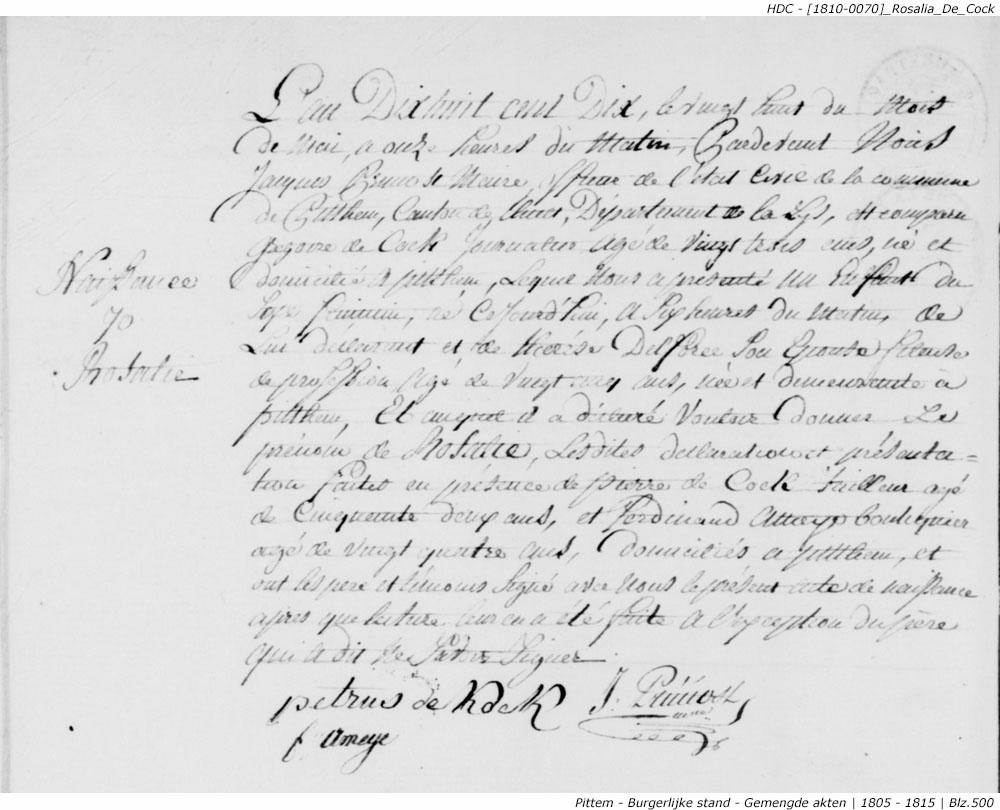 HDC - [1810-0070]_Rosalia_De_Cock
L'an Dixhuit cent Dix, le vingt huit du Mois
de Mai, a onze heures du Matin, Pardevant Nous
Jacques Pruvost Maire, officier de l'état Civil de la commune
de Pitthem, Canton de Thielt, Département de la Lys, est comparu
Gregoire de Cock Journalier agé de Vingt trois ans, né et
domicilié a pitthem, Lequel Nous a présenté Un Enfant du
Sexe feminin, né Cejourd'hui, a Six heures du Matin, de
Lui declarant et de Therese Son Epouse fileuse
de profession Agé de Vingt cinq ans, née et demeurante à
pitthem, Et auquel il a déclaré Vouloir donner Le
prénom de Rosalie, Lesdites declaration et présenta=
tion faites en présence de pierre de Cock tailleur agé
de Cinquante deux ans, et Ferdinand Ameye boutiquier
agé de vingt quatre ans, Domiciliés a pitthem, et
ont les pere et témoins Signé avec Nous le présent acte de naissance
après que lecture leur en a été faite a l'exception du père
qui a dit Ne Savoir Signer.
Naissance
De
Rosalie
petrus de KocK
J. Pruvost
f. Ameye
Pittem - Burgerlijke stand - Gemengde akten | 1805 - 1815 | Blz.500